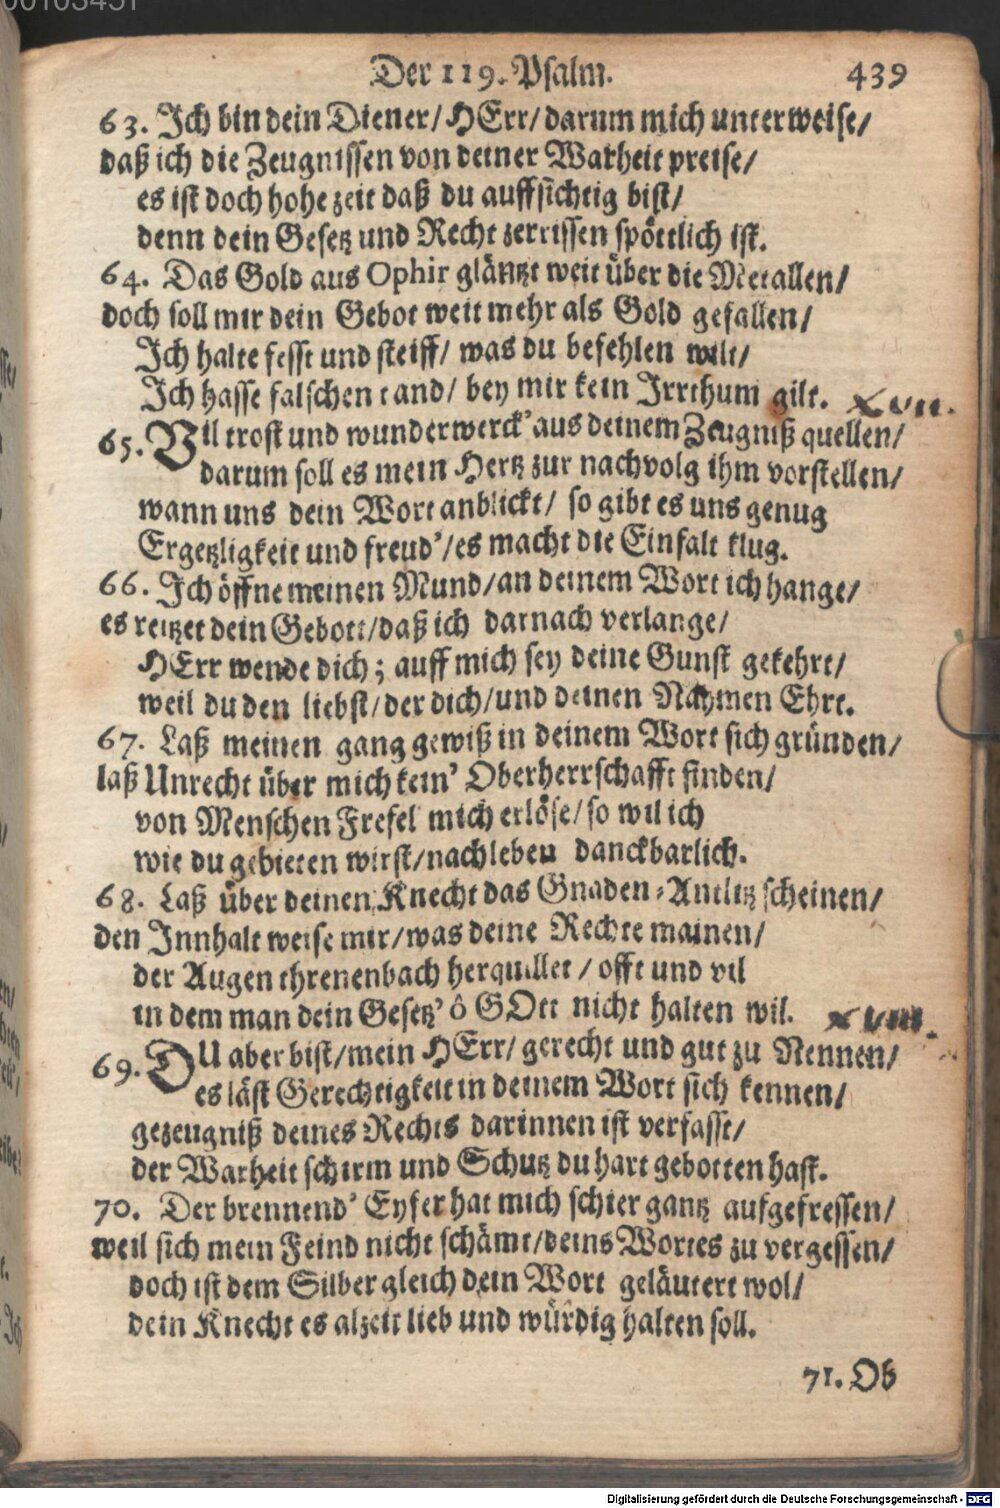 00103451
Der 119. Psalm. 439
63. Ich bin dein Diener/ HErr/ darum mich unterweise/
daß ich die Zeugnissen von deiner Warheit preise/
es ist doch hohe zeit daß du auffsichtig bist/
denn dein Gesetz und Recht zerrissen spöttlich ist.
64. Das Gold aus Ophir gläntzt weit über die Metallen/
doch soll mir dein Gebot weit mehr als Gold gefallen/
Ich halte fesst und steiff/ was du befehlen wilt/
Ich hasse falschen tand/ bey mir kein Irrthum gilt. XVII.
65. Vil trost und wunderwerck' aus deinem Zeugniß quellen/
darum soll es mein Hertz zur nachvolg ihm vorstellen/
wann uns dein Wort anblickt/ so gibt es uns genug
Ergetzligkeit und freud'/ es macht die Einfalt klug.
66. Ich öffne meinen Mund/ an deinem Wort ich hange/
es reitzet dein Gebott/ daß ich darnach verlange/
HErr wende dich; auff mich sey deine Gunst gekehrt/
weil du den liebst/ der dich/ und deinen Nahmen Ehrt.
67. Laß meinen gang gewiß in deinem Wort sich gründen/
laß Unrecht über mich kein' Oberherrschafft finden/
von Menschen Frefel mich erlöse/ so wil ich
wie du gebieten wirst/ nachleben danckbarlich.
68. Laß über deinen Knecht das Gnaden-Antlitz scheinen/
den Innhalt weise mir/ was deine Rechte mainen/
der Augen threnenbach herquillet/ offt und vil
in dem man dein Gesetz' ô GOtt nicht halten wil. XVIII.
69. DU aber bist/ mein HErr/ gerecht und gut zu Nennen/
es läst Gerechtigkeit in deinem Wort sich kennen/
gezeugniß deines Rechts darinnen ist verfasst/
der Warheit schirm und Schutz du hart gebotten hast.
70. Der brennend' Eyfer hat mich schier gantz aufgefressen/
weil sich mein Feind nicht schämt/ deins Wortes zu vergessen/
doch ist dem Silber gleich dein Wort geläutert wol/
dein Knecht es alzeit lieb und würdig halten soll.
71. Ob
Digitalisierung gefördert durch die Deutsche Forschungsgemeinschaft - DFG